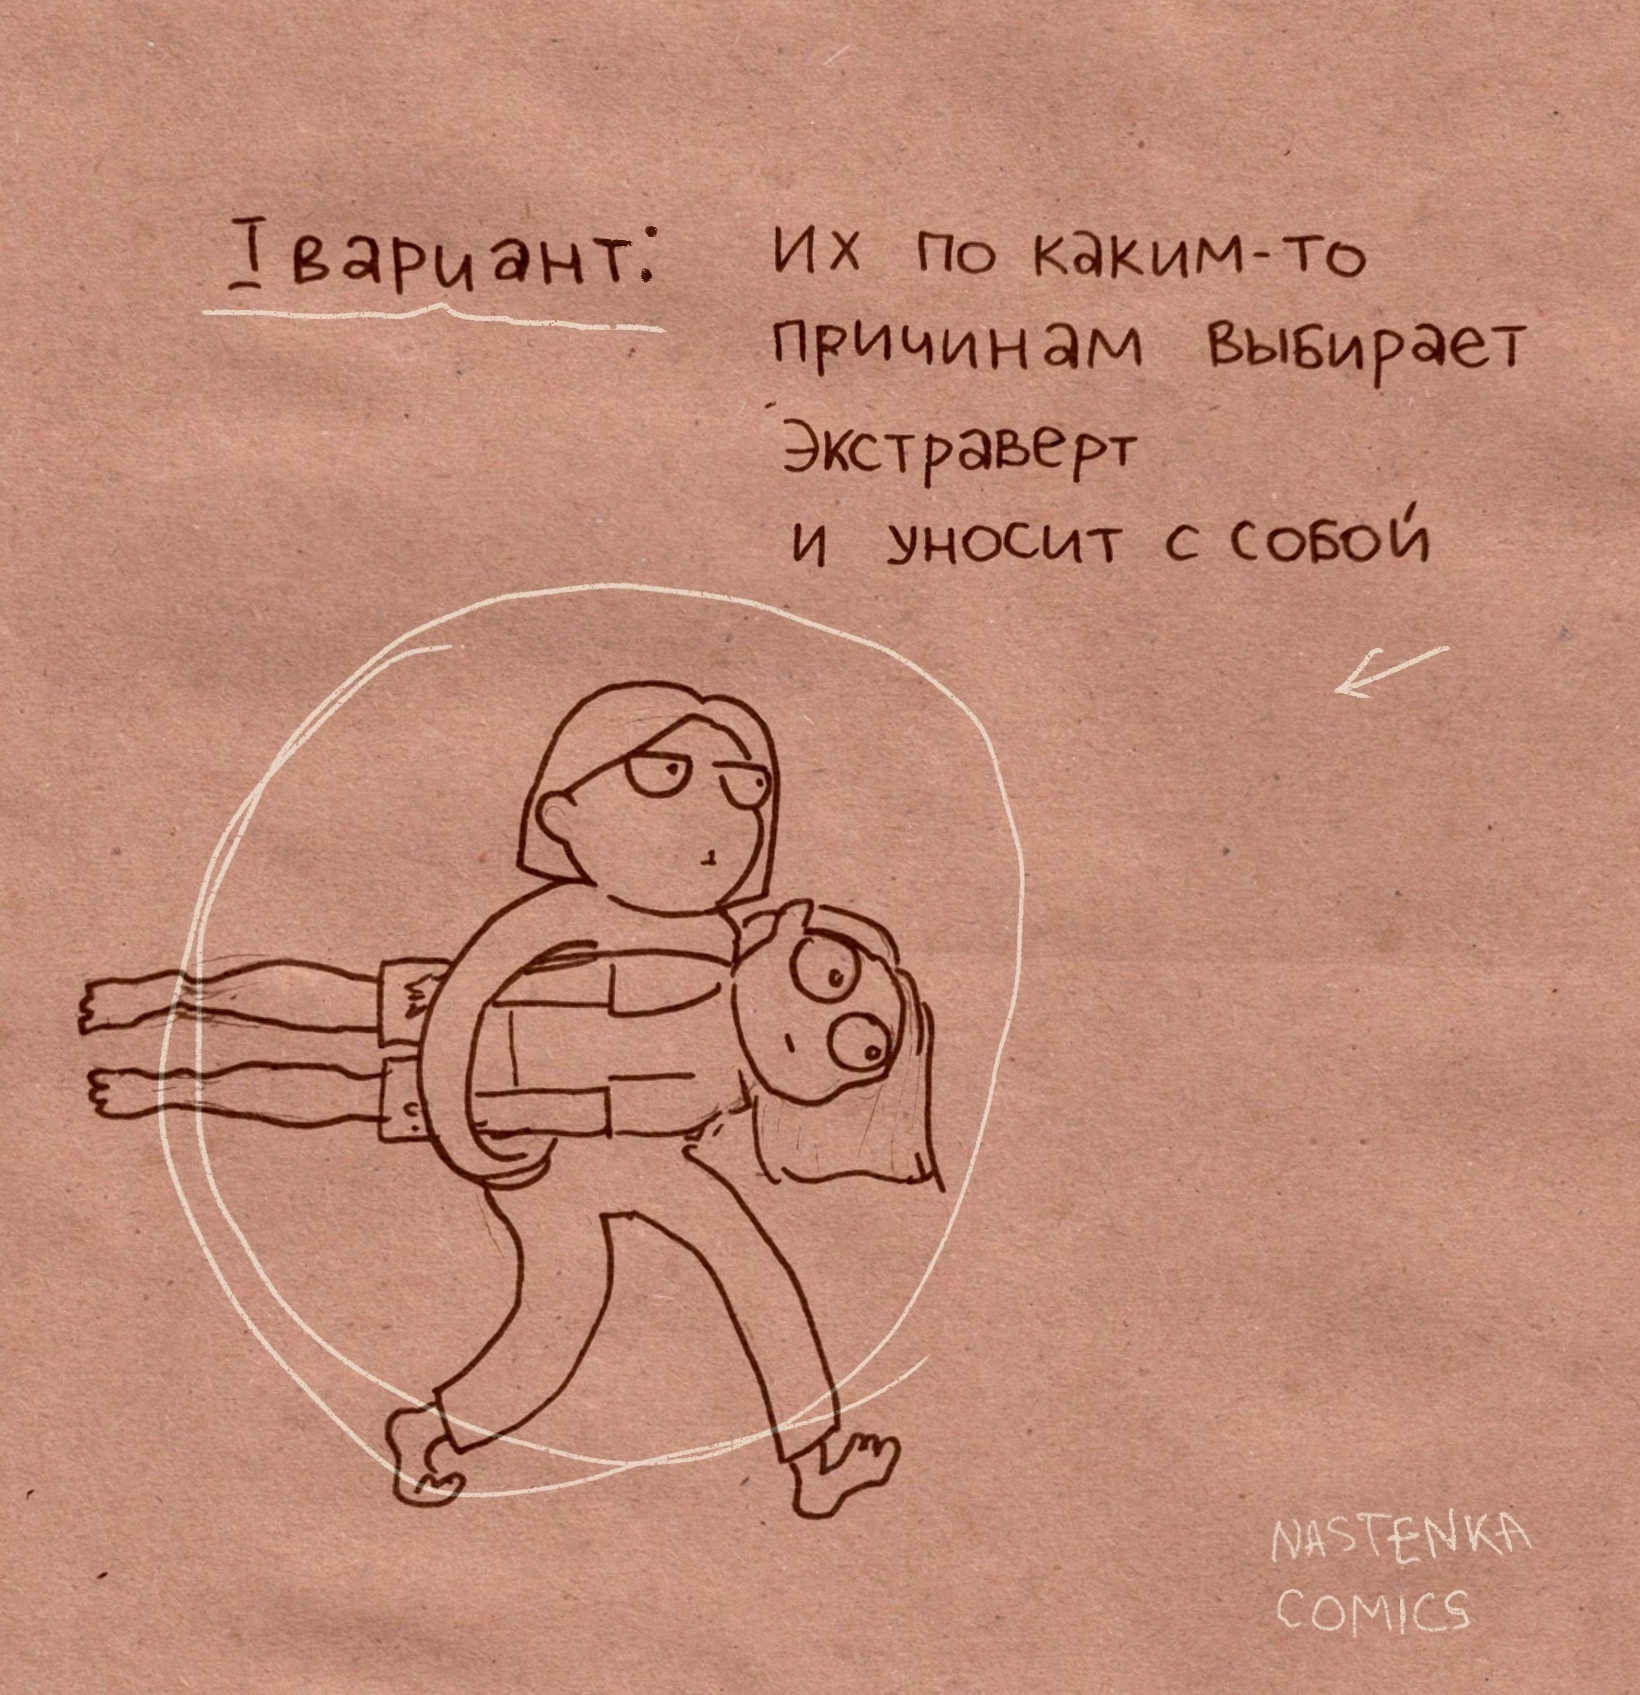 I вариант:
их по каким-то
причинам выбирает
экстраверт
и уносит с собой
NASTENKA
COMICS